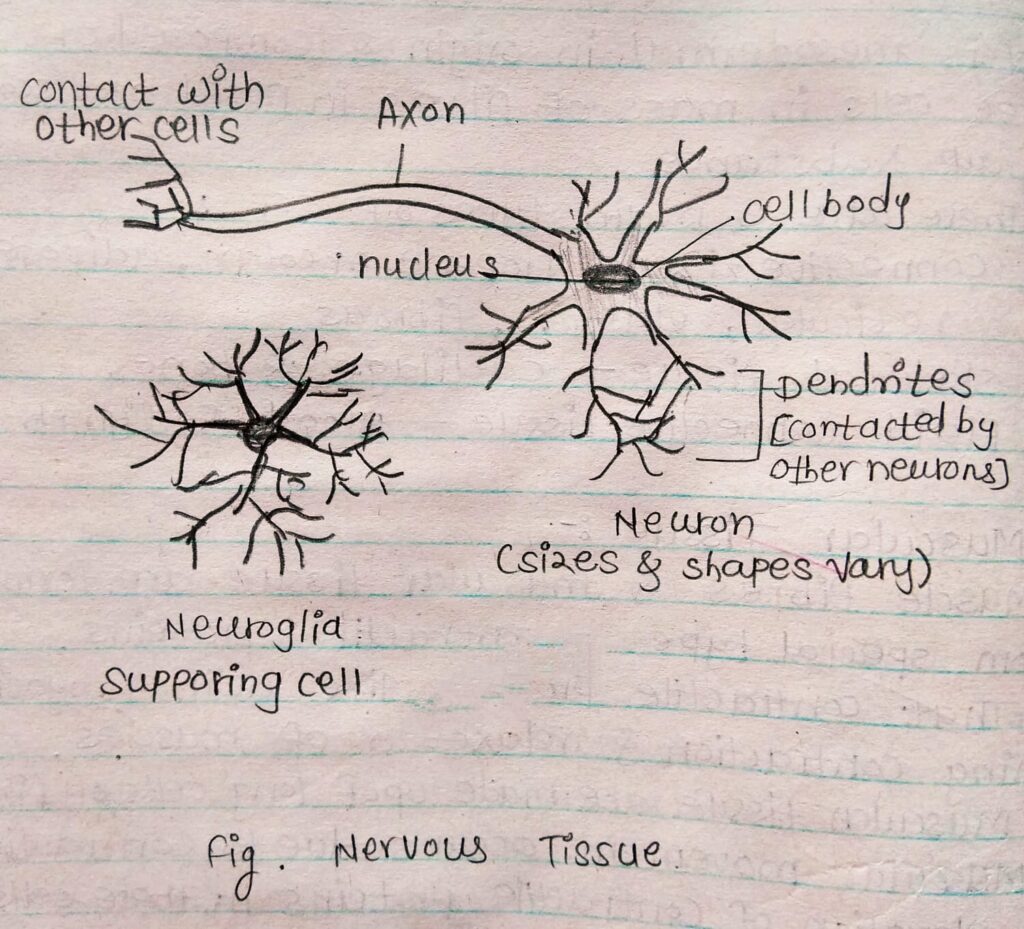 Contact with
other cells
Axon
cell body
nucleus
Dendrites
[contacted by
other neurons]
Neuron
(sizes & shapes vary)
Neuroglia
supporing cell
fig. Nervous Tissue